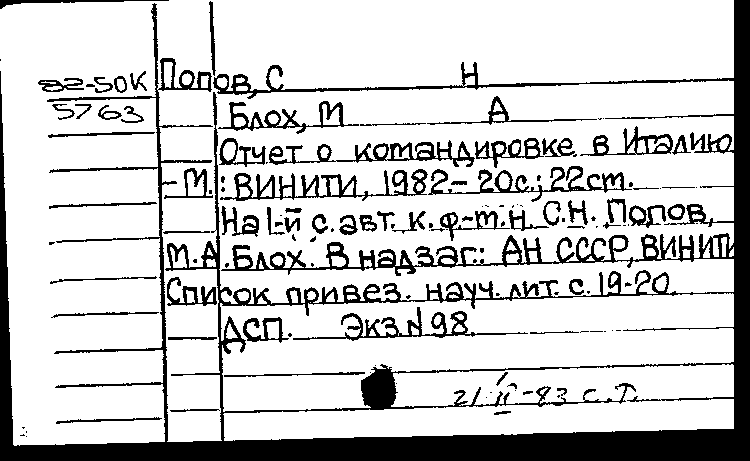 82-50К Попов, С Н
5763 Блох, М А
Отчет о командировке в Италию
- М.: ВИНИТИ, 1982.- 20с.; 22cm.
На 1-й с. авт. к. ф.-т.н. С.Н. Попов,
М.А. Блох. В надзаг.: АН СССР, ВИНИТИ
Список привез. науч. лит. с. 19-20.
ДСП. Экз.№98.
21 II-83 с.т.